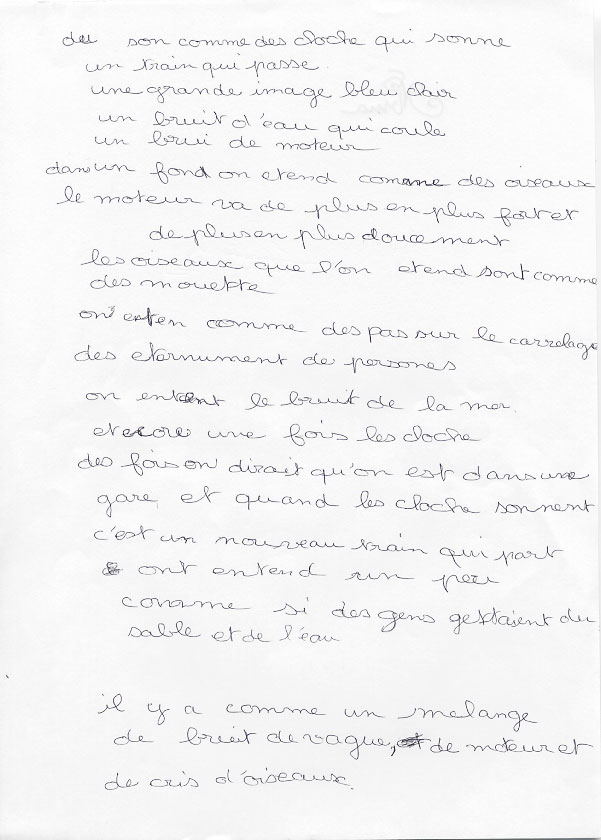 des son comme des cloche qui sonne
un train qui passe.
une grande image bleu clair
un bruit d'eau qui coule
un brui de moteur
dans un fond on etend comme des oiseaux
le moteur va de plus en plus fort et
de plus en plus doucement
les oiseaux que l'on etend sont comme
des mouette
on enten comme des pas sur le carrelage
des eternument de persones
on entent le bruit de la mer.
encore une fois les cloche
des fois on dirait qu'on est dans une
gare, et quand les cloche sonnent
c'est un nouveau train qui part
ont entend un peu
comme si des gens gettaient du
sable et de l'eau
il y a comme un melange
de bruit de vague, de moteur et
de cris d'oiseaux.